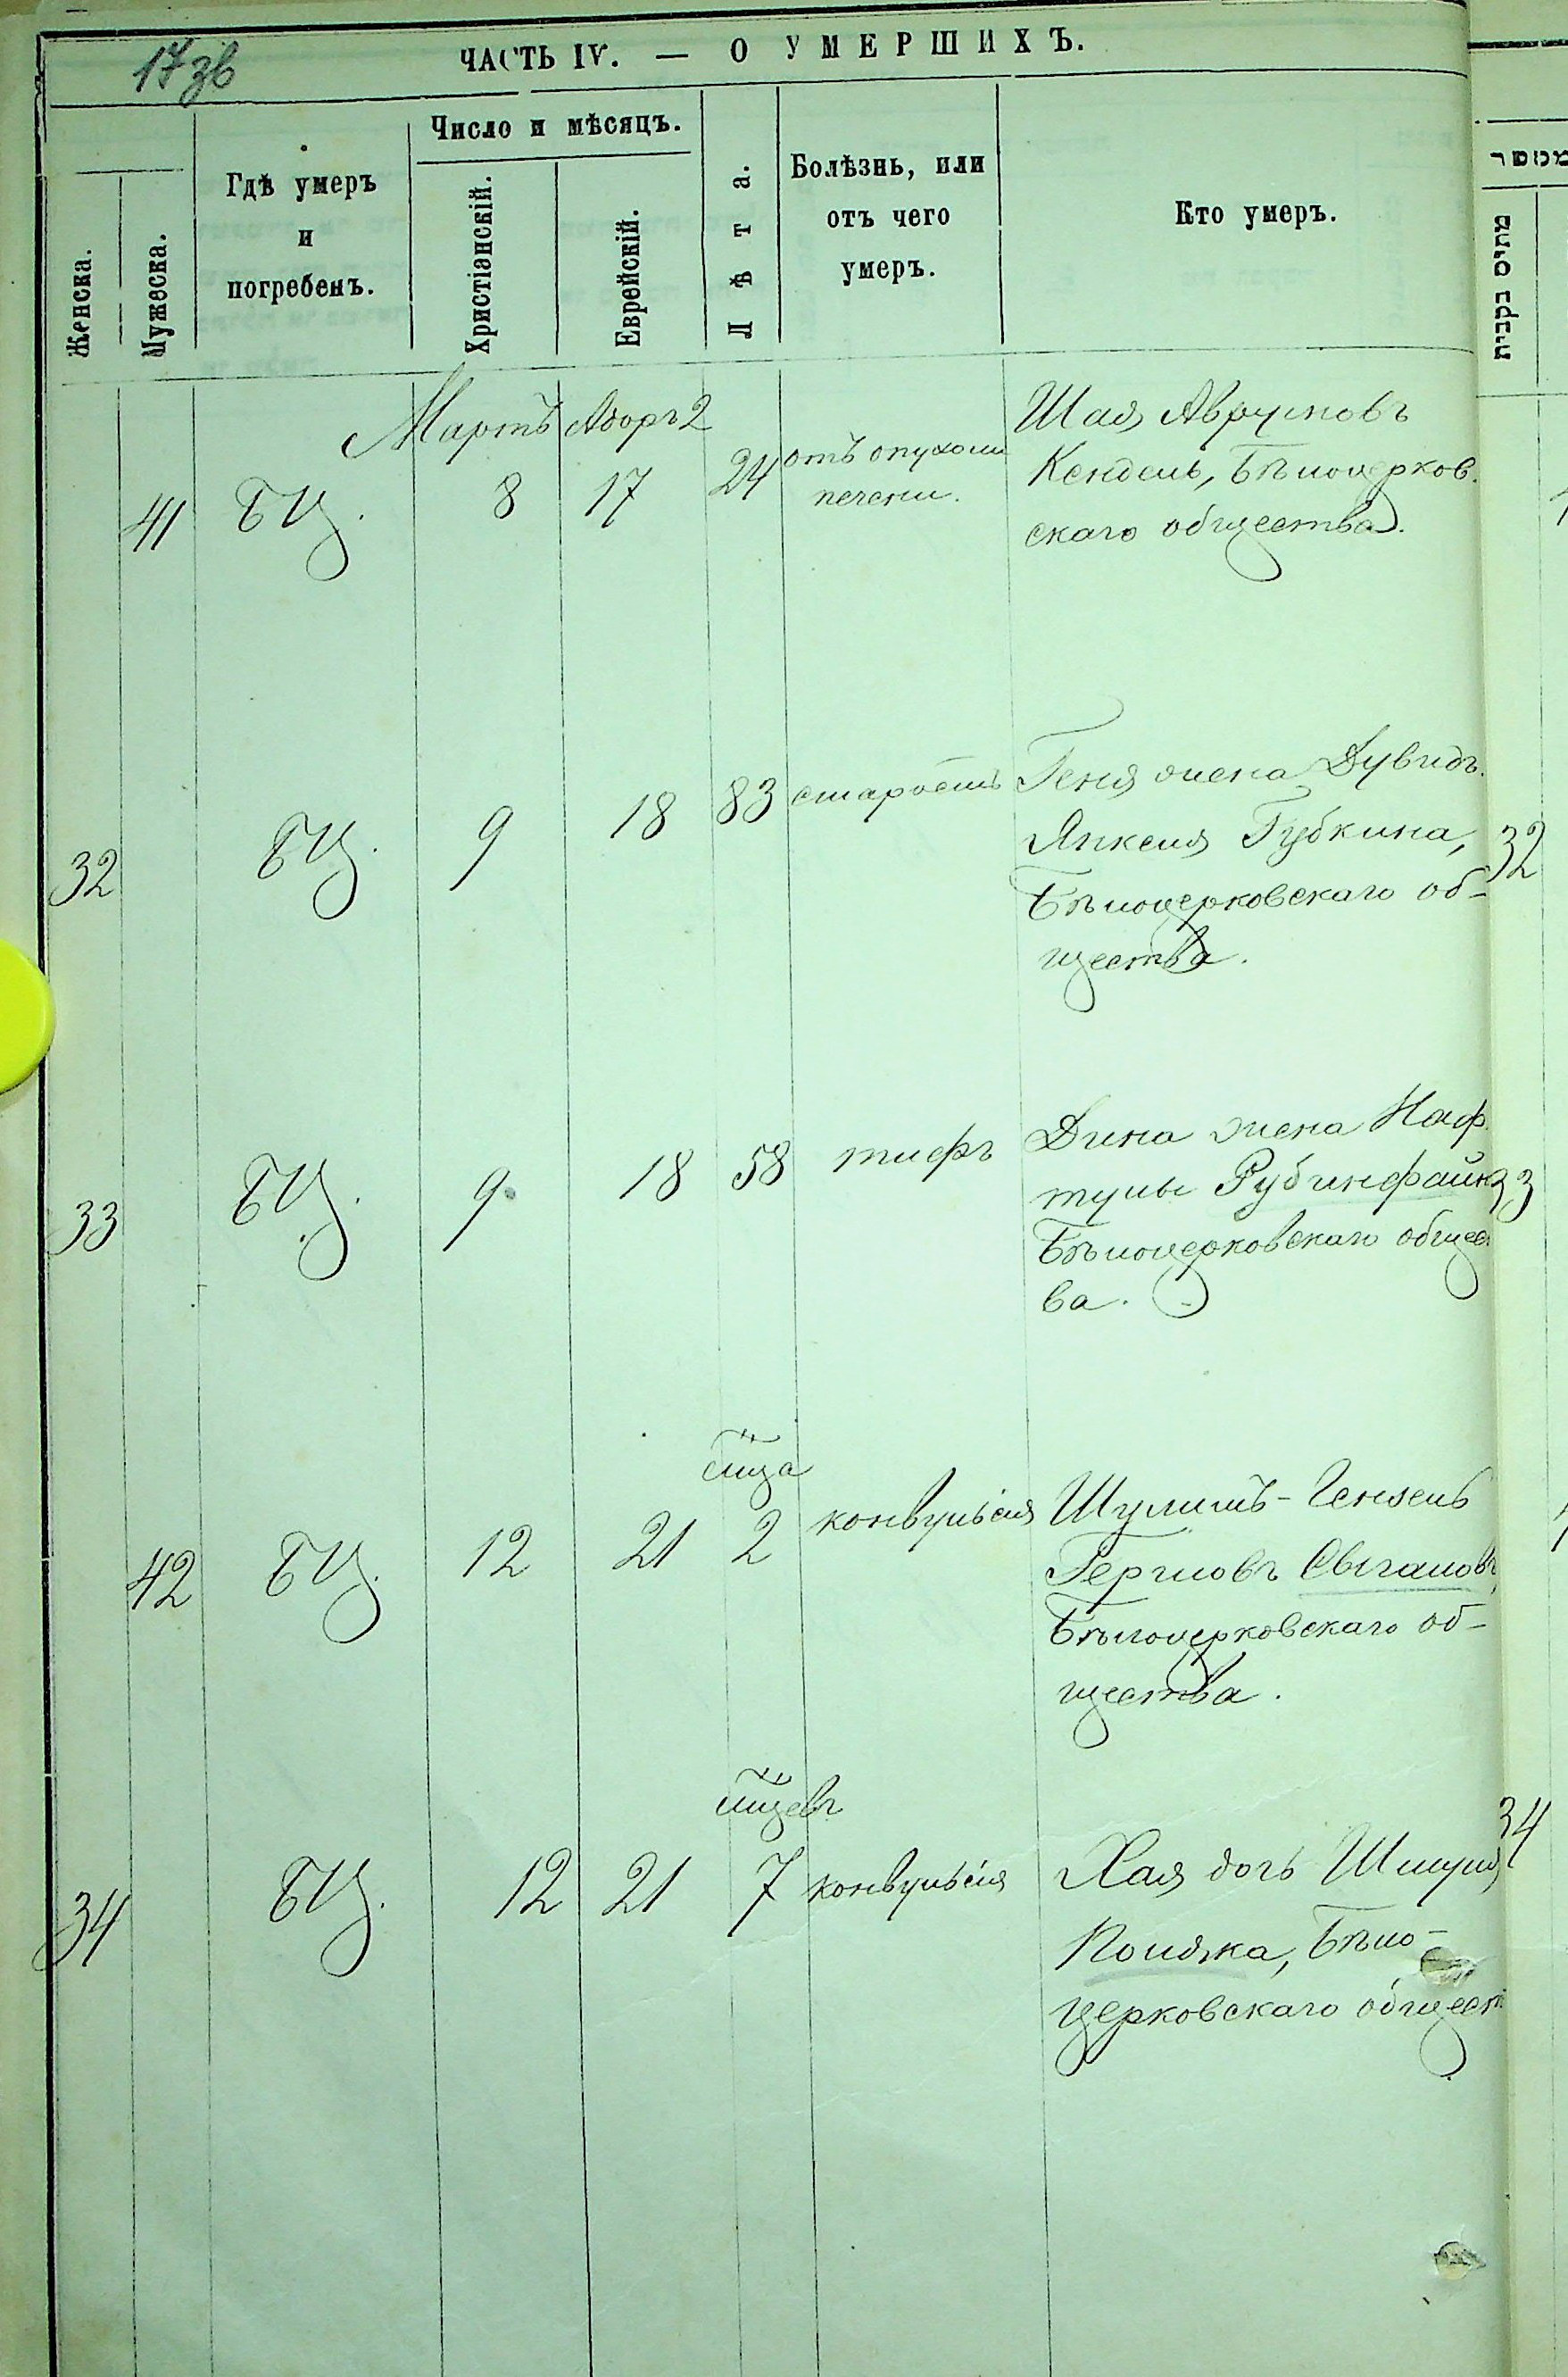 17зв
ЧАСТЬ IV. — О УМЕРШИХЪ.
Женска.
Мужеска.
Гдѣ умеръ
и
погребенъ.
Число и мѣсяцъ.
Христіанскій.
Еврейскій.
Лѣта.
Болѣзнь, или
отъ чего
умеръ.
Кто умеръ.
מתים בקבית
Мартъ Адоръ 2
41 БЦ. 8 17 24 отъ опухоли
печени.
Шая Аврумовъ
Кендель, Бѣлоцерков.
скаго общества.
32 БЦ. 9 18 83 старость
Геня жена Дувидъ
Янкеля Губкина,
Бѣлоцерковскаго об-
щества.
32
33 БЦ. 9. 18 58 тифъ
Дина жена Наф
тулы Рубинфайн
Бѣлоцерковскаго общес
ва.
33
мца
42 БЦ. 12 21 2 конвульсія
Шулимъ-Гензель
Гершовъ
Бѣлоцерковскаго об-
щества.
мцевъ
34 БЦ. 12 21 7 конвульсія
Хая дочь Шмуля
Поляка, Бѣло-
церковскаго общест
34